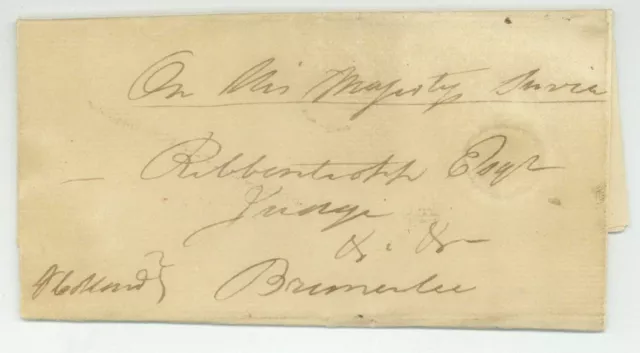 On His Majestys Service
— Ribbentropp Esqr
Judge
&c. &c
Bremerlee